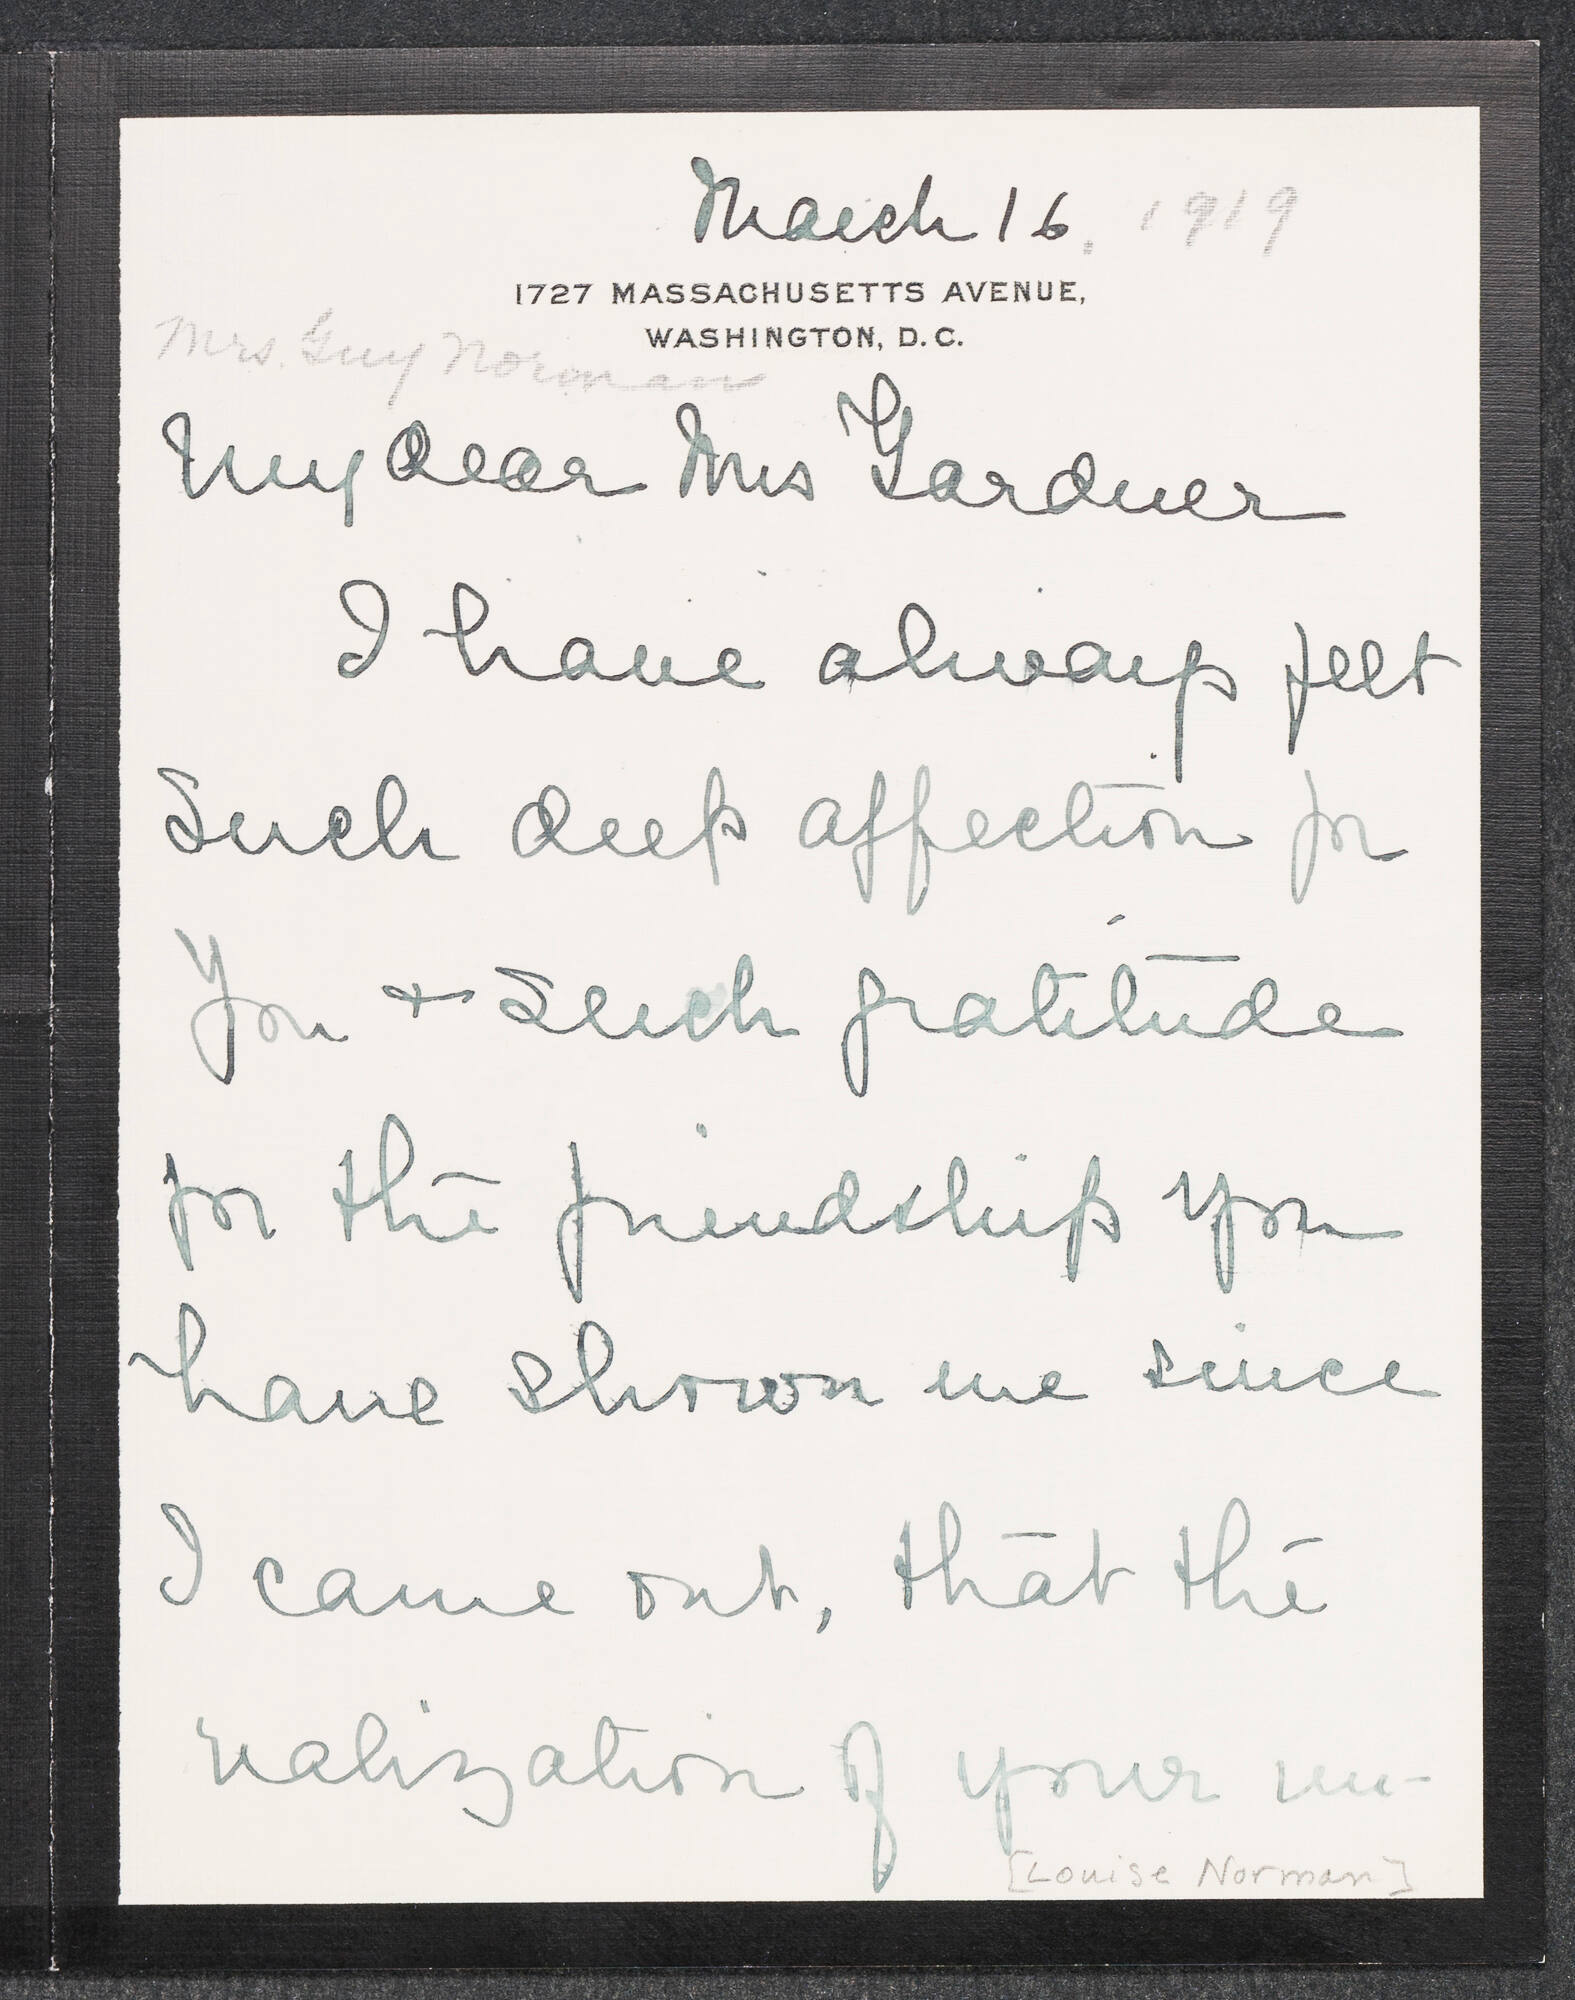 March 16. 1919
1727 MASSACHUSETTS AVENUE,
WASHINGTON, D.C.
Mrs. Guy Norman
My dear Mrs Gardner
I have always felt
such deep affection for
you + such gratitude
for the friendship you
have shown me since
I came out, that the
realization of your un-
[Louise Norman]